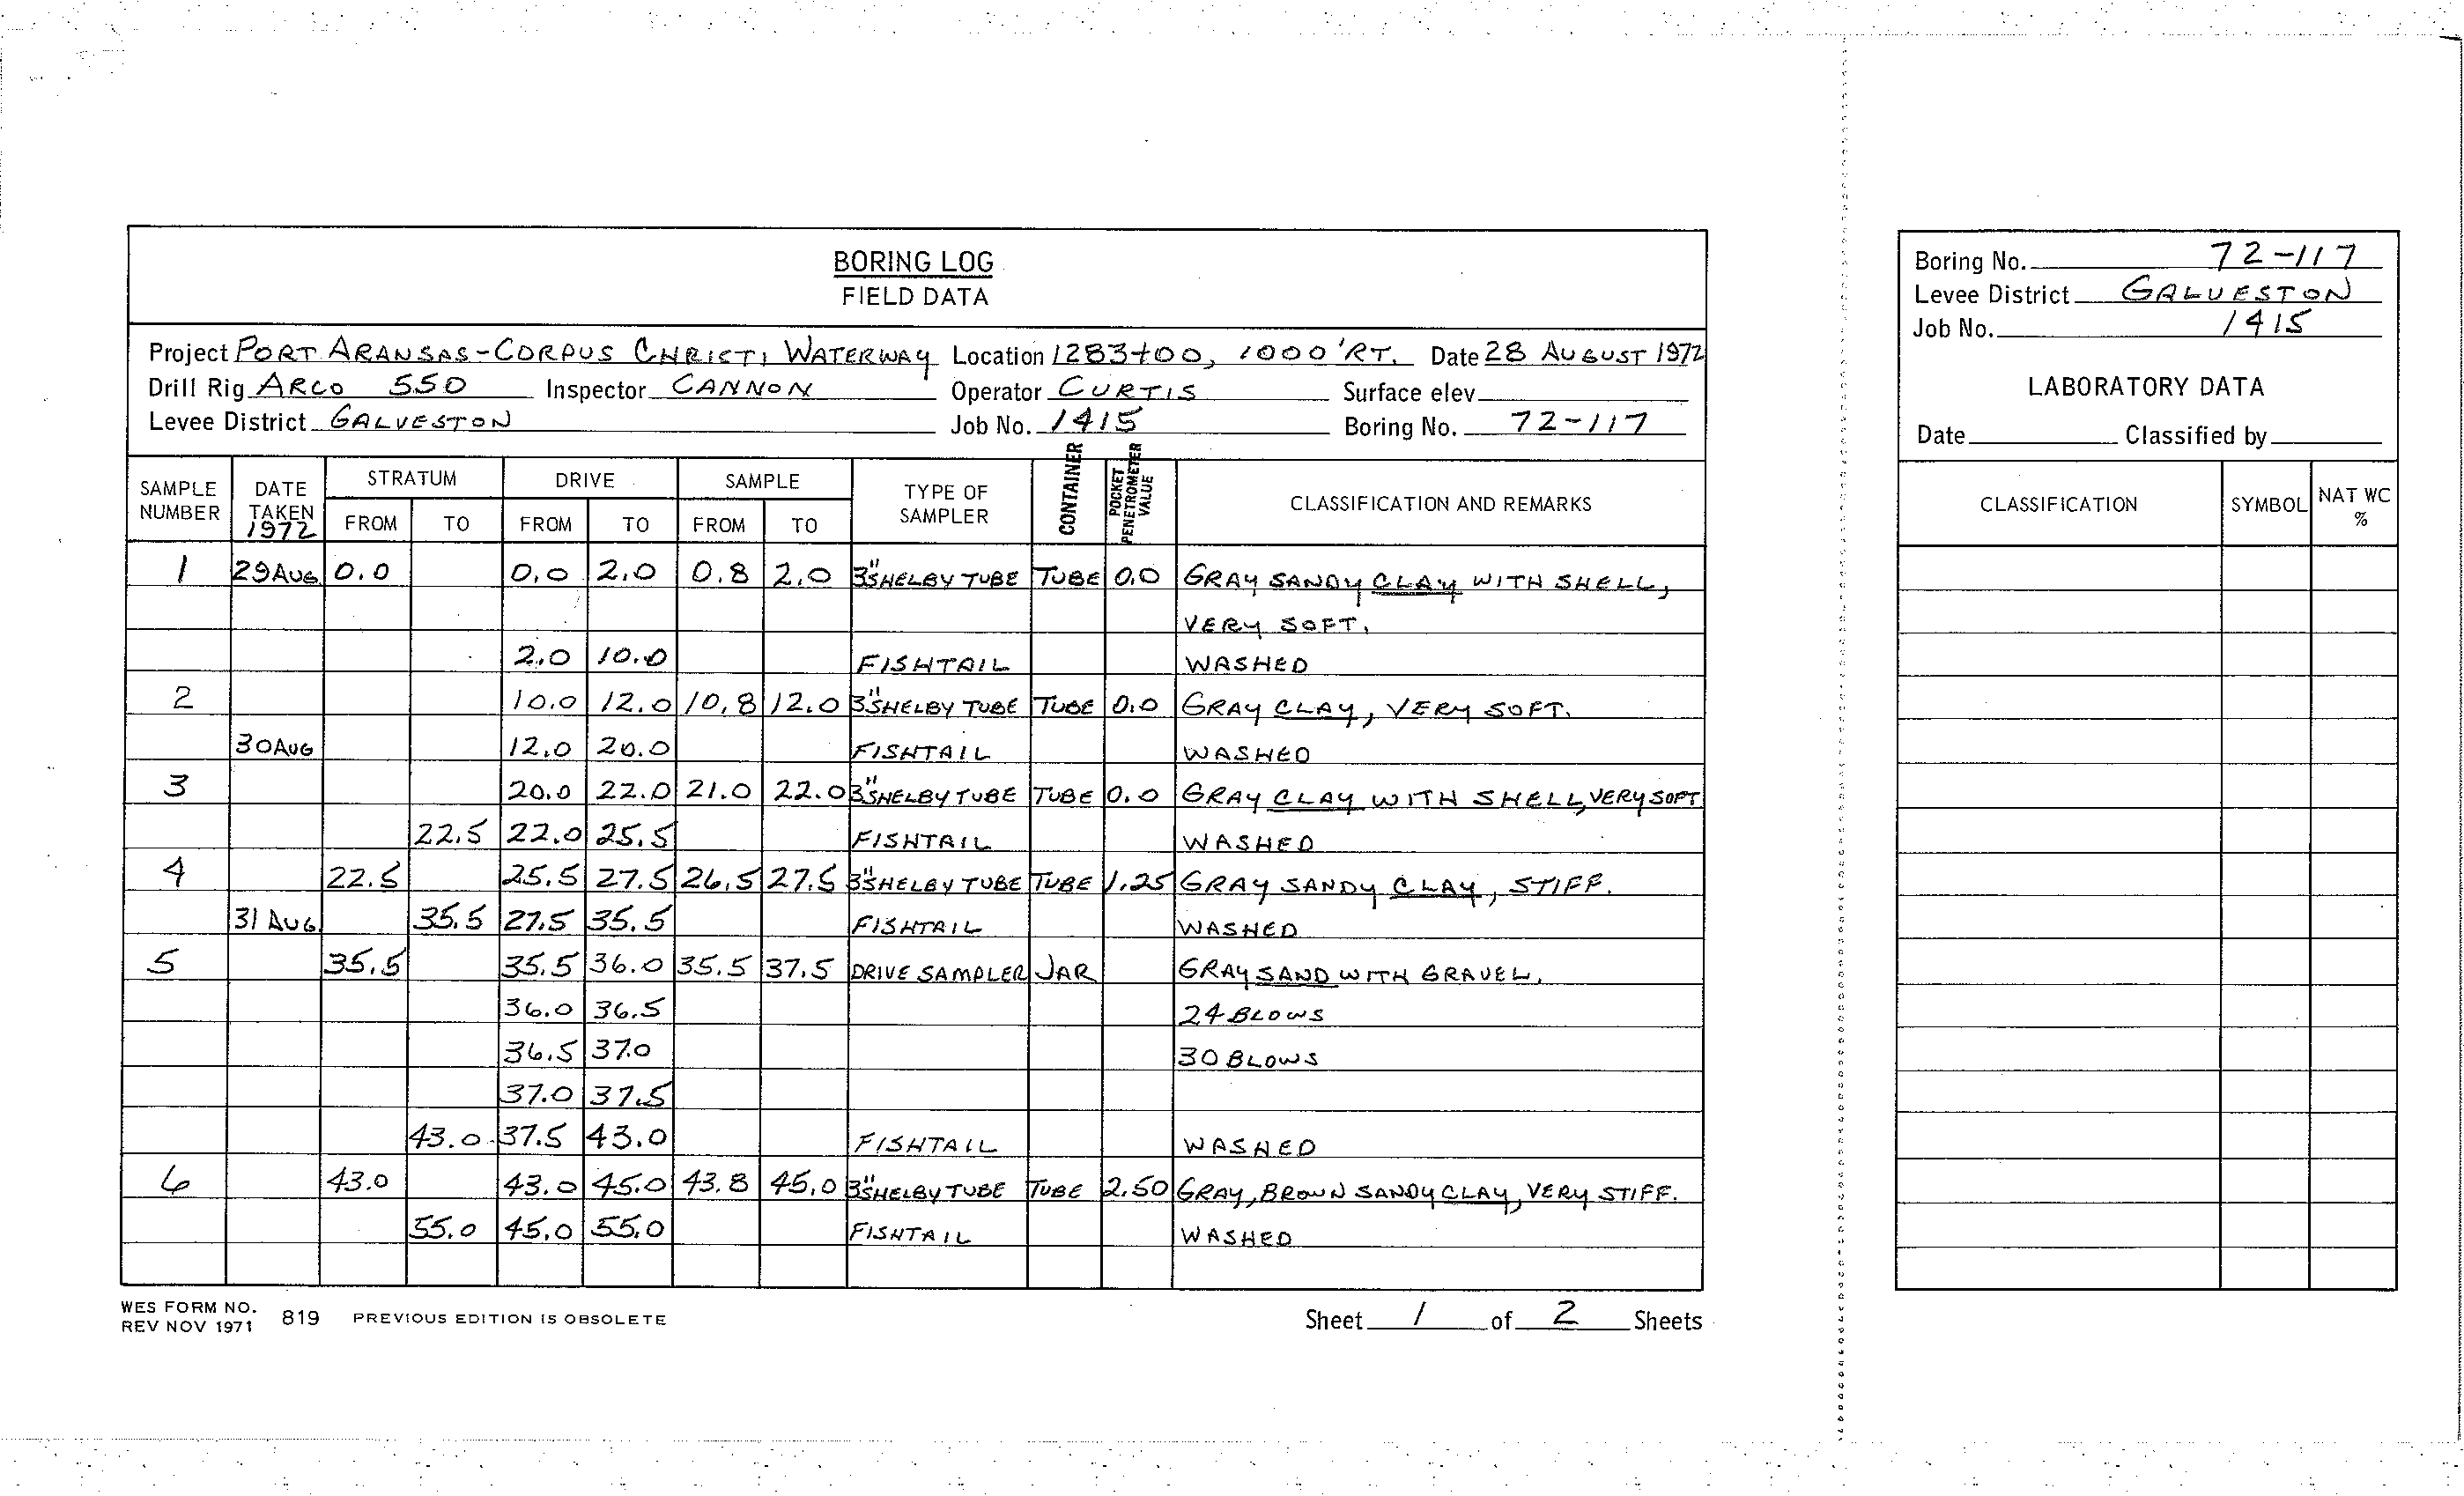 BORING LOG
FIELD DATA
Project PORT ARANSAS-CORPUS CHRISTI WATERWAY Location 1283+00, 1000'RT. Date 28 AUGUST 1972
Drill Rig ARCO 550 Inspector CANNON Operator CURTIS Surface elev
Levee District GALVESTON Job No. 1415 Boring No. 72-117
SAMPLE NUMBER DATE TAKEN 1972 STRATUM FROM TO DRIVE FROM TO SAMPLE FROM TO TYPE OF SAMPLER CONTAINER POCKET PENETROMETER VALUE CLASSIFICATION AND REMARKS
1 29AUG. 0.0 0.0 2.0 0.8 2.0 3"SHELBY TUBE TUBE 0.0 GRAY SANDY CLAY WITH SHELL,
VERY SOFT.
2.0 10.0 FISHTAIL WASHED
2 10.0 12.0 10.8 12.0 3"SHELBY TUBE TUBE 0.0 GRAY CLAY, VERY SOFT.
30AUG 12.0 20.0 FISHTAIL WASHED
3 20.0 22.0 21.0 22.0 3"SHELBY TUBE TUBE 0.0 GRAY CLAY WITH SHELL, VERY SOFT
22.5 22.0 25.5 FISHTAIL WASHED
4 22.5 25.5 27.5 26.5 27.5 3"SHELBY TUBE TUBE 1.25 GRAY SANDY CLAY, STIFF.
31 AUG. 35.5 27.5 35.5 FISHTAIL WASHED
5 35.5 35.5 36.0 35.5 37.5 DRIVE SAMPLER JAR GRAY SAND WITH GRAVEL.
36.0 36.5 24 BLOWS
36.5 37.0 30 BLOWS
37.0 37.5
43.0 37.5 43.0 FISHTAIL WASHED
6 43.0 43.0 45.0 43.8 45.0 3"SHELBY TUBE TUBE 2.50 GRAY, BROWN SANDY CLAY, VERY STIFF.
55.0 45.0 55.0 FISHTAIL WASHED
WES FORM NO. 819 PREVIOUS EDITION IS OBSOLETE
REV NOV 1971
Sheet 1 of 2 Sheets
Boring No. 72-117
Levee District GALVESTON
Job No. 1415
LABORATORY DATA
Date Classified by
CLASSIFICATION SYMBOL NAT WC %